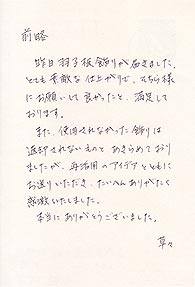 前略
昨日羽子板飾りが届きました。
とても素敵な仕上がりで、そちら様
にお願いして良かったと、満足して
おります。
また、使用されなかった飾りは
返却されないものとあきらめており
ましたが、再活用のアイデアとともに
お送りいただき、たいへんありがたく
感激いたしました。
本当にありがとうございました。
草々